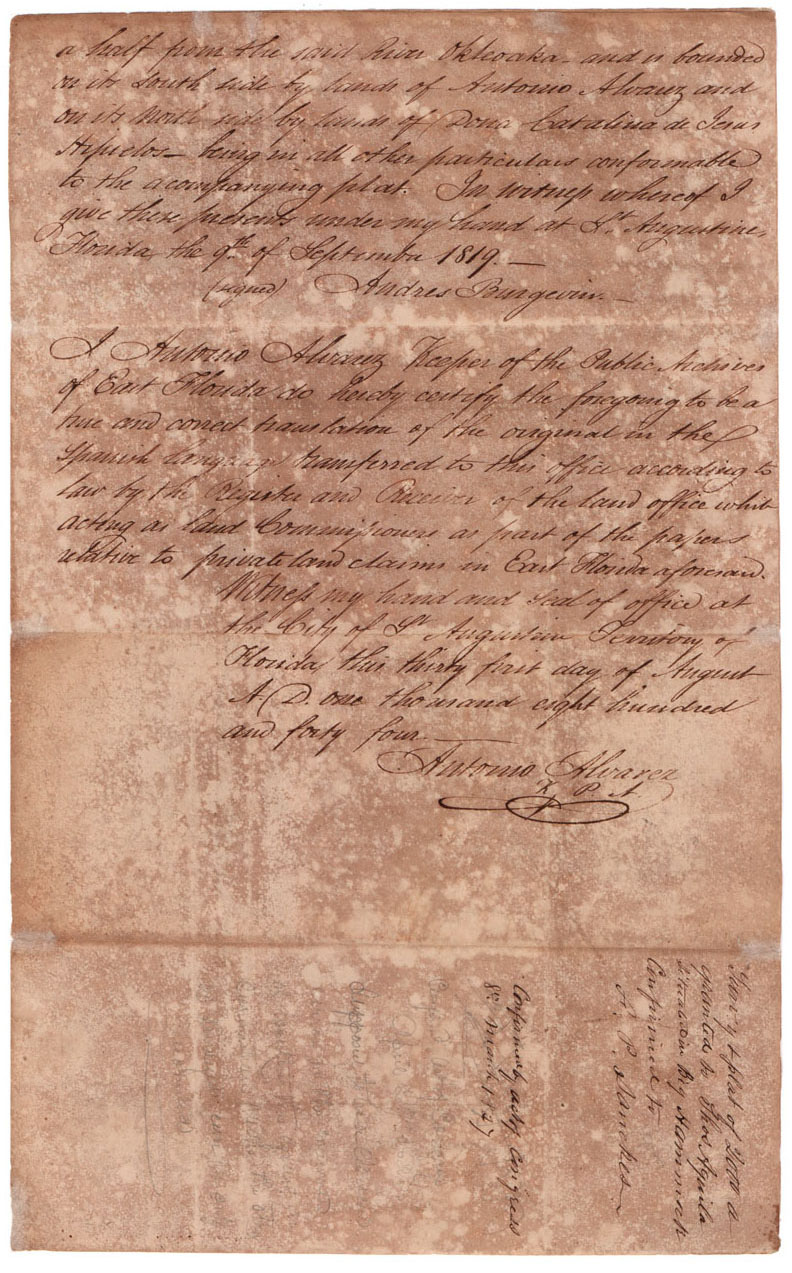 a half from the said River Ocklwaka and is bounded
on its South side by lands of Antonio Alvarez and
on its North side by lands of Dona Catalina de Jesus
Hijuelos — being in all other particulars conformable
to the acompanying plat. In witness whereof I
give these presents under my hand at St. Augustine,
Florida, the 9th. of September 1819. —
(signed) Andres Burgevin. —
I Antonio Alvarez Keeper of the Public Archives
of East Florida do hereby certify the foregoing to be a
true and correct translation of the original in the
Spanish language transferred to this office according to
law by the Register and Receiver of the land office whilst
acting as land Commissioners as part of the papers
relative to private land claims in East Florida aforesaid.
Witness my hand and seal of office at
the City of St. Augustine Territory of
Florida, this thirty first day of August
A.D. one thousand eight hundred
and forty four. —
Antonio Alvarez
K P A
& plat of a
granted to Thos. Aguila
situated in Big Hammock
Confirmed to
P. Sanches
Confirmed by act of Congress
March 1827